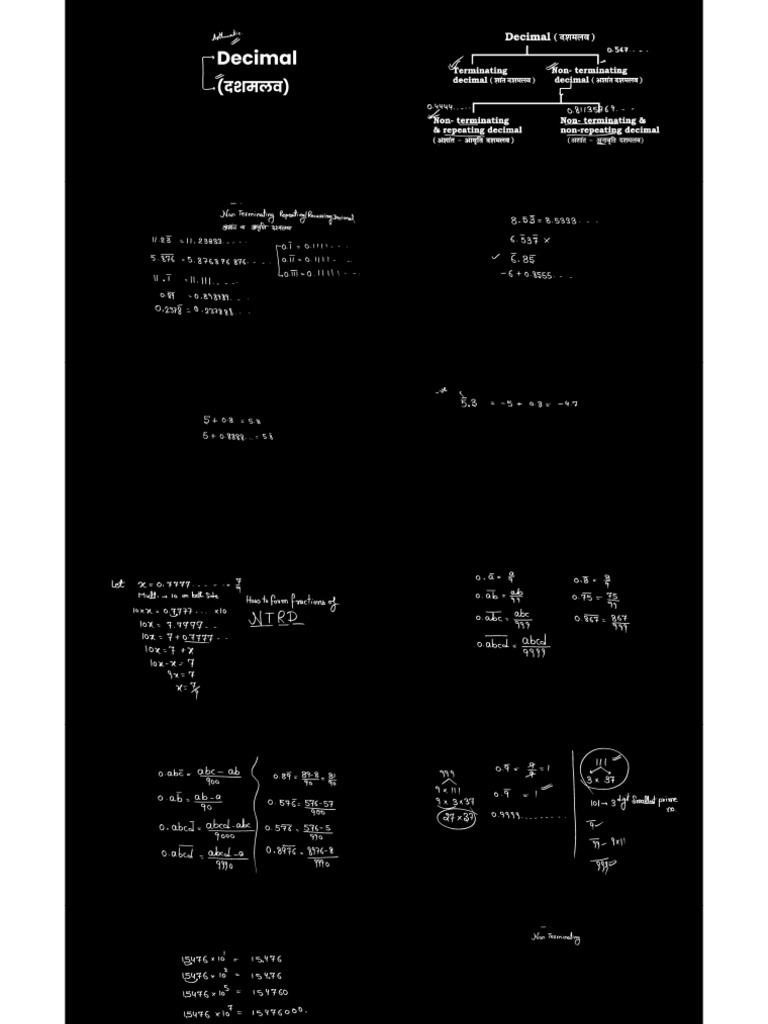 Arithmetic
Decimal
(दशमलव)
Decimal (दशमलव)
0.567.....
Terminating
decimal (शांत दशमलव)
Non- terminating
decimal (अशांत दशमलव)
0.4444.....
0.81135969...
Non- terminating
& repeating decimal
(अशांत - आवृति दशमलव)
Non- terminating &
non-repeating decimal
Non Terminating Repeating/Recurring Decimal
11.23̅ = 11.23333.....
5.8̅7̅6̅ = 5.876876876....
11.1̅ = 11.111....
0.237̅8̅ = 0.237888...
0.1̅ = 0.1111...
0.1̅1̅ = 0.1111...
0.1̅1̅1̅ = 0.11111...
8.53̅ = 8.5333...
6.5̅37̅ ×
✓ 6̅.85̅
-6 + 0.8555...
5 + 0.8 = 5.8
5 + 0.8888... = 5.8
5̅.3 = -5 + 0.3 = -4.7
Let x = 0.7777....... = 7/9
Multi → 10 on both Side
10×x = 0.7777... ×10
10x = 7.7777...
10x = 7 + 0.7777...
10x = 7 + x
10x - x = 7
9x = 7
x = 7/9
How to form fractions of
NTRD
0.a̅ = a/9
0.a̅b̅ = ab/99
0.a̅b̅c̅ = abc/999
0.a̅b̅c̅d̅ = abcd/9999
0.8̅ = 8/9
0.7̅5̅ = 75/99
0.8̅6̅7̅ = 867/999
0.abc̅ = abc-ab/900
0.ab̅ = ab-a/90
0.abcd̅ = abcd-abc/9000
0.ab̅c̅d̅ = abcd-a/9990
0.89̅ = 89-8/90 = 81/90
0.576̅ = 576-57/900
0.59̅8̅ = 598-5/990
0.89̅7̅6̅ = 8976-8/9990
999
9×111
9×3×37
27×37
0.9̅ = 9/9 = 1
0.9̅ = 1
0.9999..........
111
3 × 37
101 → 3 digit Smallest prime
no.
9̅
9̅9̅ - 9×11
9̅9̅9̅
1.5476×10¹ = 15.476
1.5476×10² = 154.76
1.5476×10⁵ = 154760
1.5476×10⁷ = 15476000.
Non Terminating